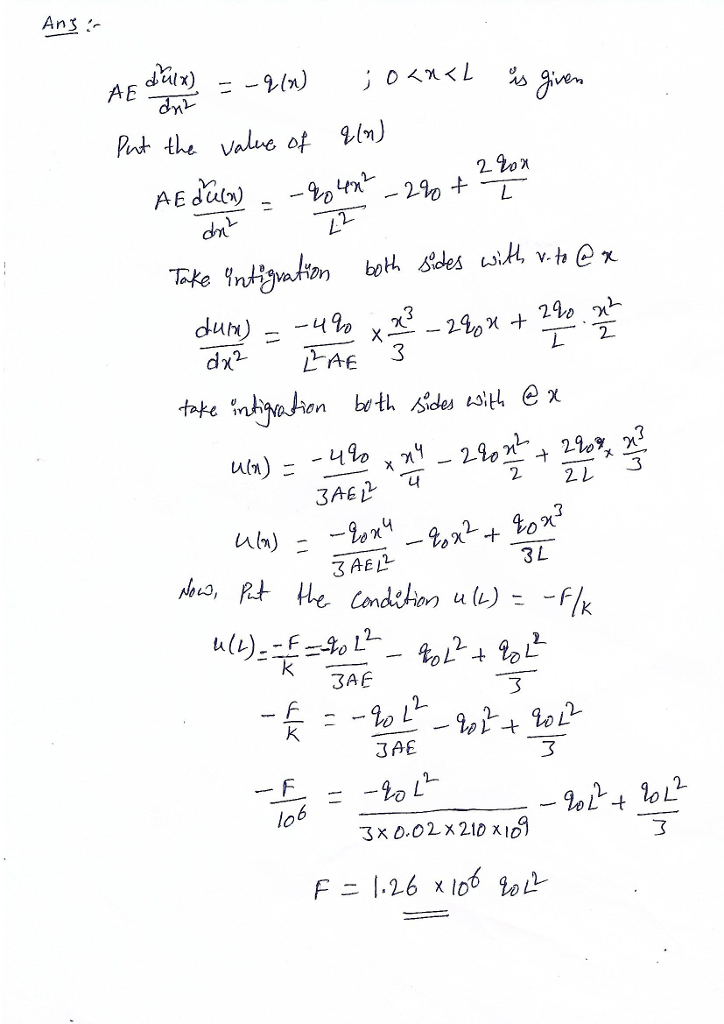 Ans :-
AE d²u(x)/dx² = -q(x) ; 0 < x < L is given
Put the value of q(x)
AE d²u(x)/dx² = -q₀4x²/L² - 2q₀ + 2q₀x/L
Take intigration both sides with r. to @ x
du(x)/dx² = -4q₀/L²AE × x³/3 - 2q₀x + 2q₀/L · x²/2
take intigration both sides with @ x
u(x) = -4q₀/3AEL² × x⁴/4 - 2q₀x²/2 + 2q₀x/2L × x³/3
u(x) = -q₀x⁴/3AEL² - q₀x² + q₀x³/3L
Now, Put the condition u(L) = -F/K
u(L) = -F/K = -q₀L²/3AE - q₀L² + q₀L²/3
-F/K = -q₀L²/3AE - q₀L² + q₀L²/3
-F/10⁶ = -q₀L²/3×0.02×210×10⁹ - q₀L² + q₀L²/3
F = 1.26 × 10⁶ q₀L²